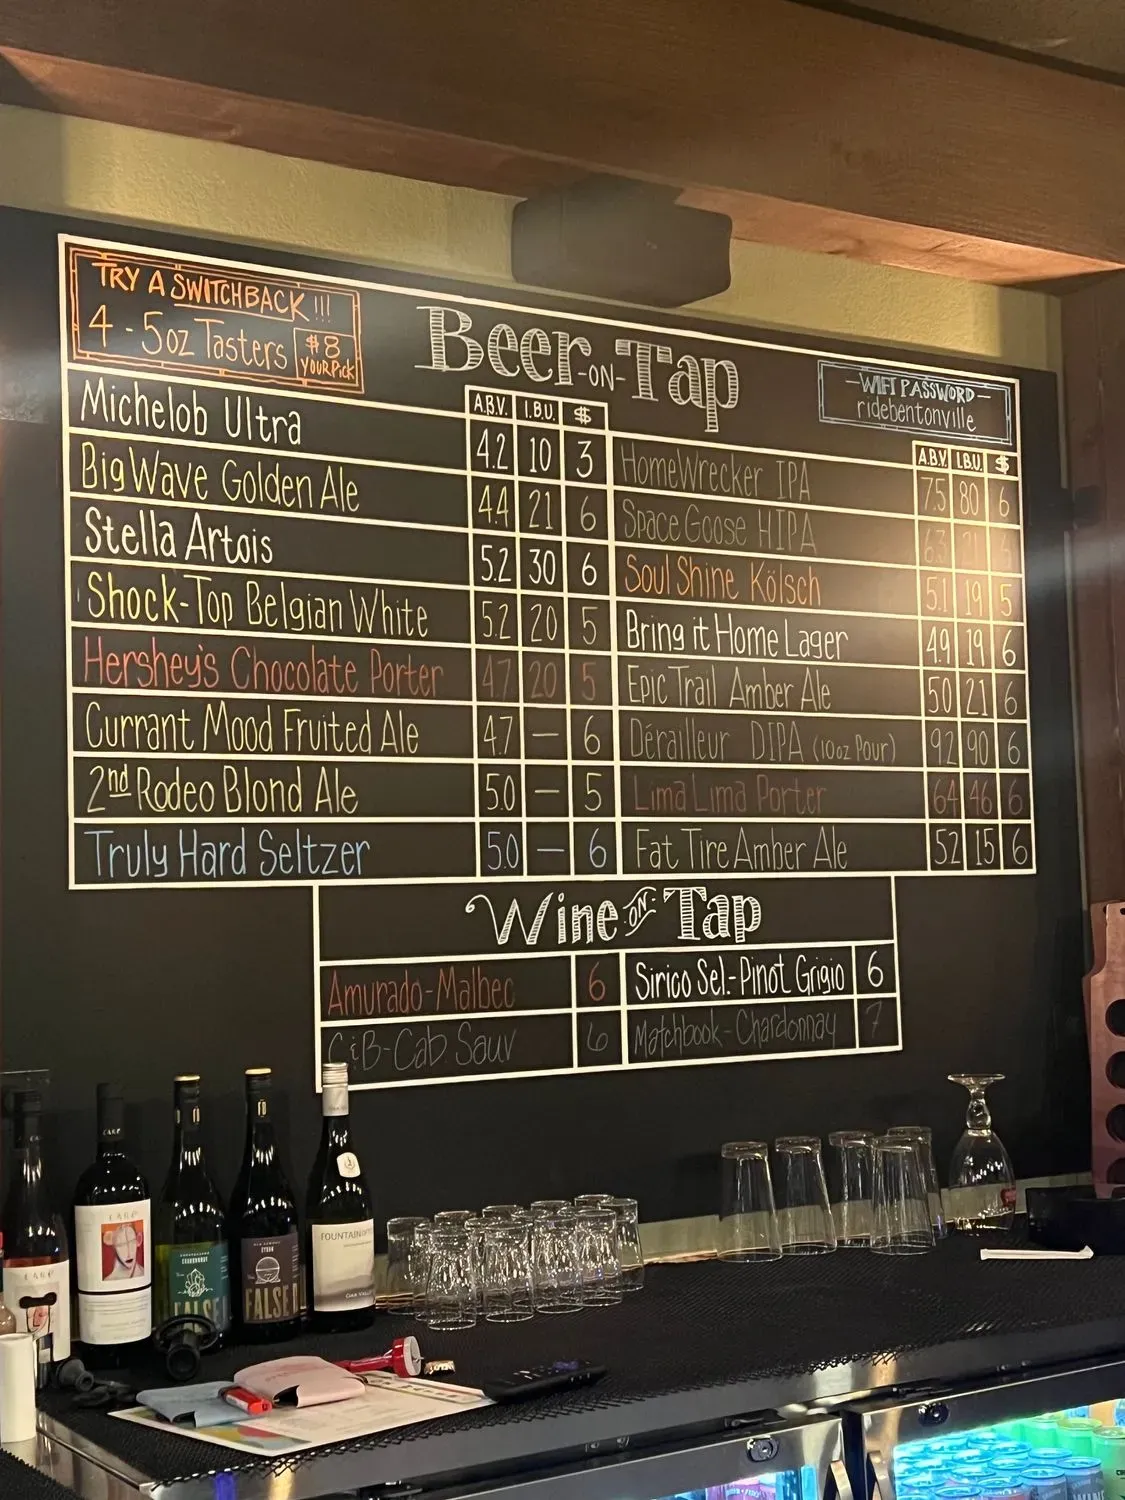 TRY A SWITCHBACK!!!
4 - 5oz Tasters
$8
YOUR PICK
Beer-ON-Tap
—WIFI PASSWORD—
ridebentonville
A.B.V. I.B.U. $
Michelob Ultra 4.2 10 3
Big Wave Golden Ale 4.4 21 6
Stella Artois 5.2 30 6
Shock-Top Belgian White 5.2 20 5
Hershey's Chocolate Porter 4.7 20 5
Currant Mood Fruited Ale 4.7 — 6
2nd Rodeo Blond Ale 5.0 — 5
Truly Hard Seltzer 5.0 — 6
A.B.V. I.B.U. $
HomeWrecker IPA 7.5 80 6
Space Goose HIPA 6.3 21 6
Soul Shine Kölsch 5.1 19 5
Bring it Home Lager 4.9 19 6
Epic Trail Amber Ale 5.0 21 6
Dérailleur DIPA (10oz Pour) 9.2 90 6
Lima Lima Porter 6.4 46 6
Fat Tire Amber Ale 5.2 15 6
Wine ON Tap
Amurado-Malbec 6
Sirico Sel.-Pinot Grigio 6
C&B-Cab Sauv 6
Matchbook-Chardonnay 7
FALSE
FALSE
FOUNTAIN